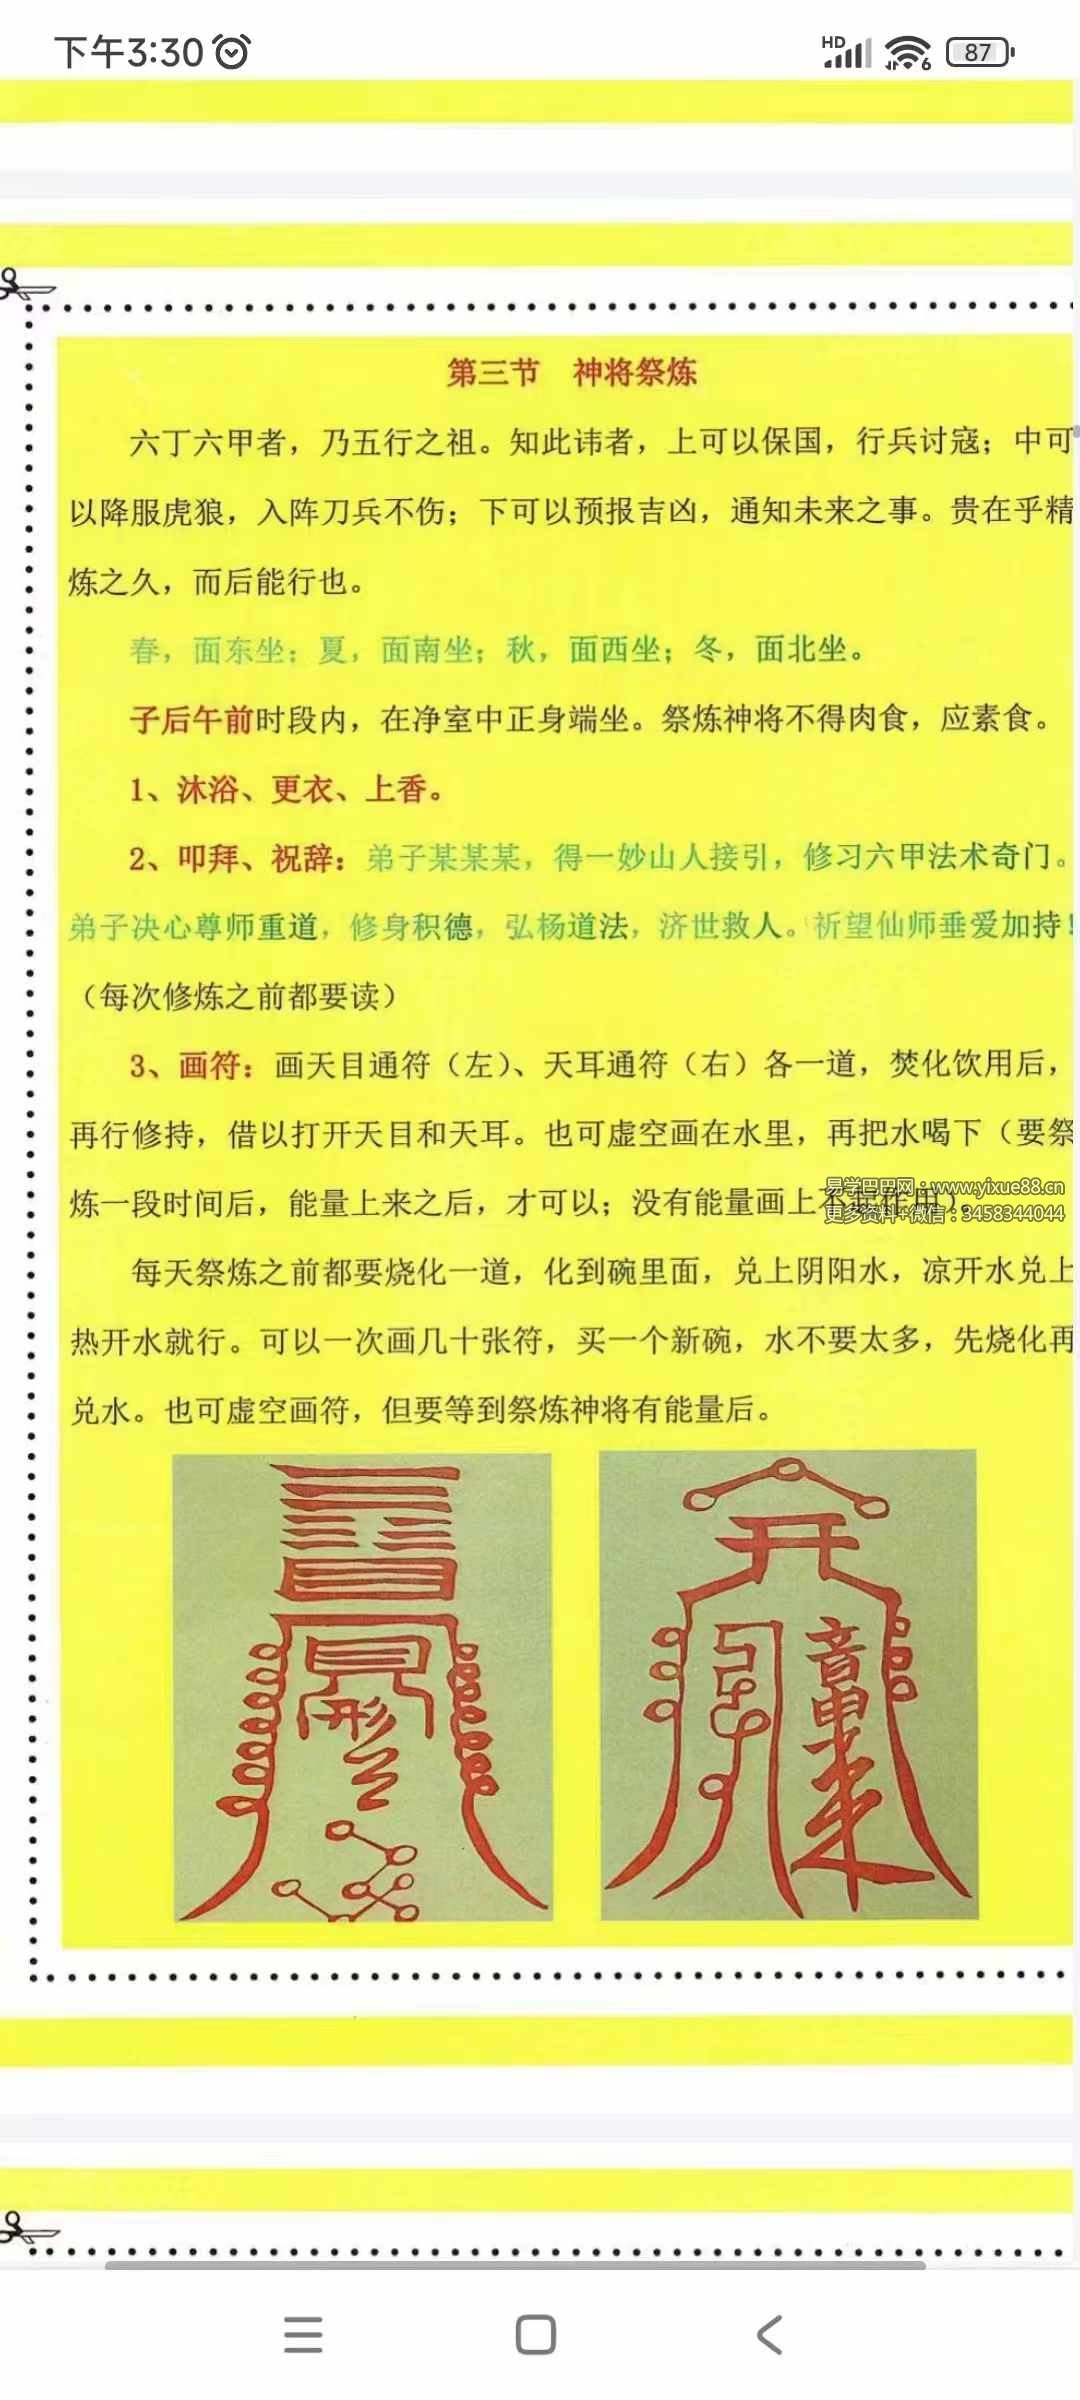 下午3:30
HD
6
87
第三节 神将祭炼
六丁六甲者，乃五行之祖。知此讳者，上可以保国，行兵讨寇；中可
以降服虎狼，入阵刀兵不伤；下可以预报吉凶，通知未来之事。贵在乎精
炼之久，而后能行也。
春，面东坐；夏，面南坐；秋，面西坐；冬，面北坐。
子后午前时段内，在净室中正身端坐。祭炼神将不得肉食，应素食。
1、沐浴、更衣、上香。
2、叩拜、祝辞：弟子某某某，得一妙山人接引，修习六甲法术奇门。
弟子决心尊师重道，修身积德，弘杨道法，济世救人。祈望仙师垂爱加持！
（每次修炼之前都要读）
3、画符：画天目通符（左）、天耳通符（右）各一道，焚化饮用后，
再行修持，借以打开天目和天耳。也可虚空画在水里，再把水喝下（要祭
炼一段时间后，能量上来之后，才可以；没有能量画上不起作用）。
易学巴巴网：www.yixue88.cn
更多资料+微信：3458344044
每天祭炼之前都要烧化一道，化到碗里面，兑上阴阳水，凉开水兑上
热开水就行。可以一次画几十张符，买一个新碗，水不要太多，先烧化再
兑水。也可虚空画符，但要等到祭炼神将有能量后。